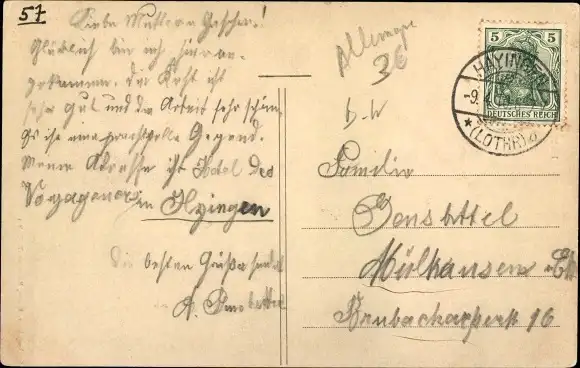 57
Liebe Mutter u. Geschw.!
Glücklich bin ich hier an-
gekommen. Die Kost ist
sehr gut und die Arbeit sehr schön.
Es ist eine prachtvolle Gegend.
Meine Adresse ist Hotel des
Voyageurs in Hayingen
Die besten Grüße sendet
A.
Allemagne
36
5 5
DEUTSCHES REICH
HAYINGEN
-9.
*(LOTHR)
Familie
Mülhausen i/Els
16